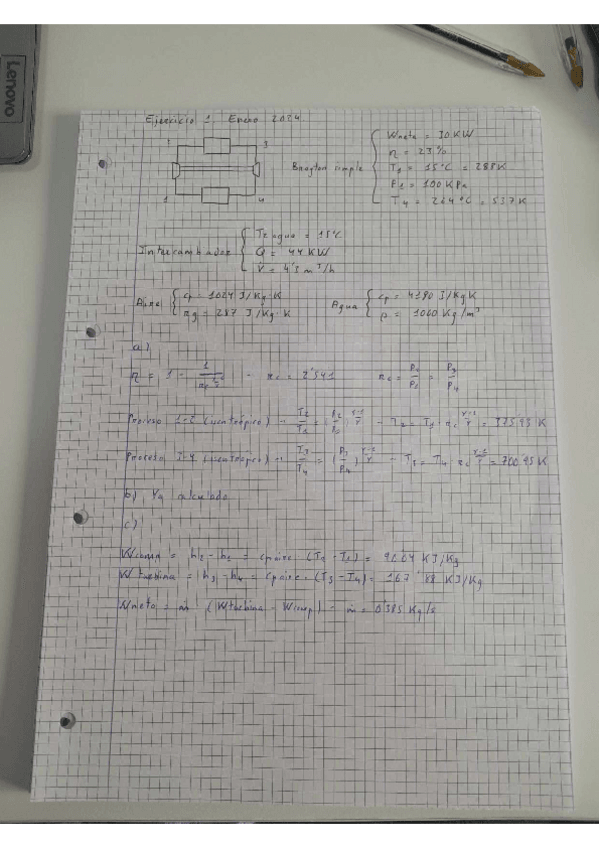 Lenovo
Ejercicio 1, Enero 2024
2 3
1 4
Brayton simple
Wneto = 30 KW
η = 23%
T1 = 15°C = 288K
P1 = 100 KPa
T4 = 264°C = 537K
Intercambiador
Te agua = 15°C
Q = 44 KW
V = 4'3 m³/h
Aire
cp = 1024 J/Kg·K
Rg = 287 J/Kg·K
Agua
cp = 4180 J/Kg K
ρ = 1000 Kg/m³
a)
η = 1 - 1/ - πc = 2'541 πc = =P3/P4
Proceso 1-2 (isentrópico) - T2/T1 = - T2 = T1 · πc^(γ-1/γ) = 375'93 K
Proceso 3-4 (isentrópico) - T3/T4 = (P3/P4)^(γ-1/γ) - T3 = T4 πc^(γ-1/γ) = 700'95 K
b) Ya calculado
c)
Wcomp = h2 - h1 = cp aire · (T2 - T1) = KJ/Kg
Wturbina = h3 - h4 = cp aire · (T3 - T4) = 167'88 KJ/Kg
Wneto = ṁ (Wturbina - Wcomp) - ṁ = 0'385 Kg/s